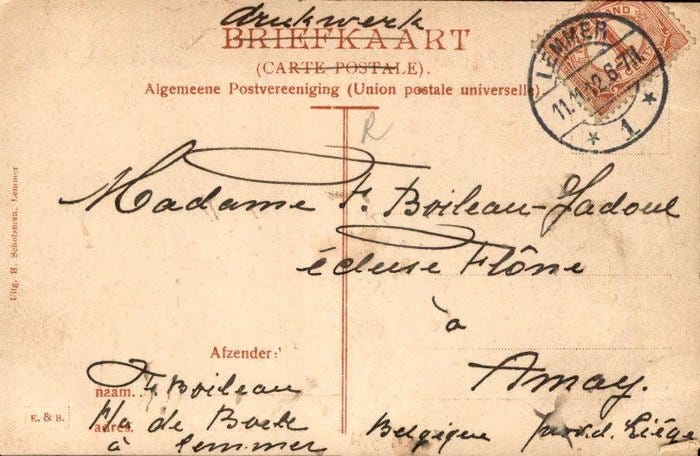 drukwerk
BRIEFKAART
(CARTE POSTALE).
Algemeene Postvereeniging (Union postale universelle).
LEMMER
11.11.12.6-7N.
1
R
Madame F. Boileau-Jadoul
écluse Flône
à
Amay.
Belgique prov. d. Liége
Afzender:
naam. F. Boileau
adres. P/a de Boer
à Lemmer
E. & B.
Uitg. H. Schotsman, Lemmer